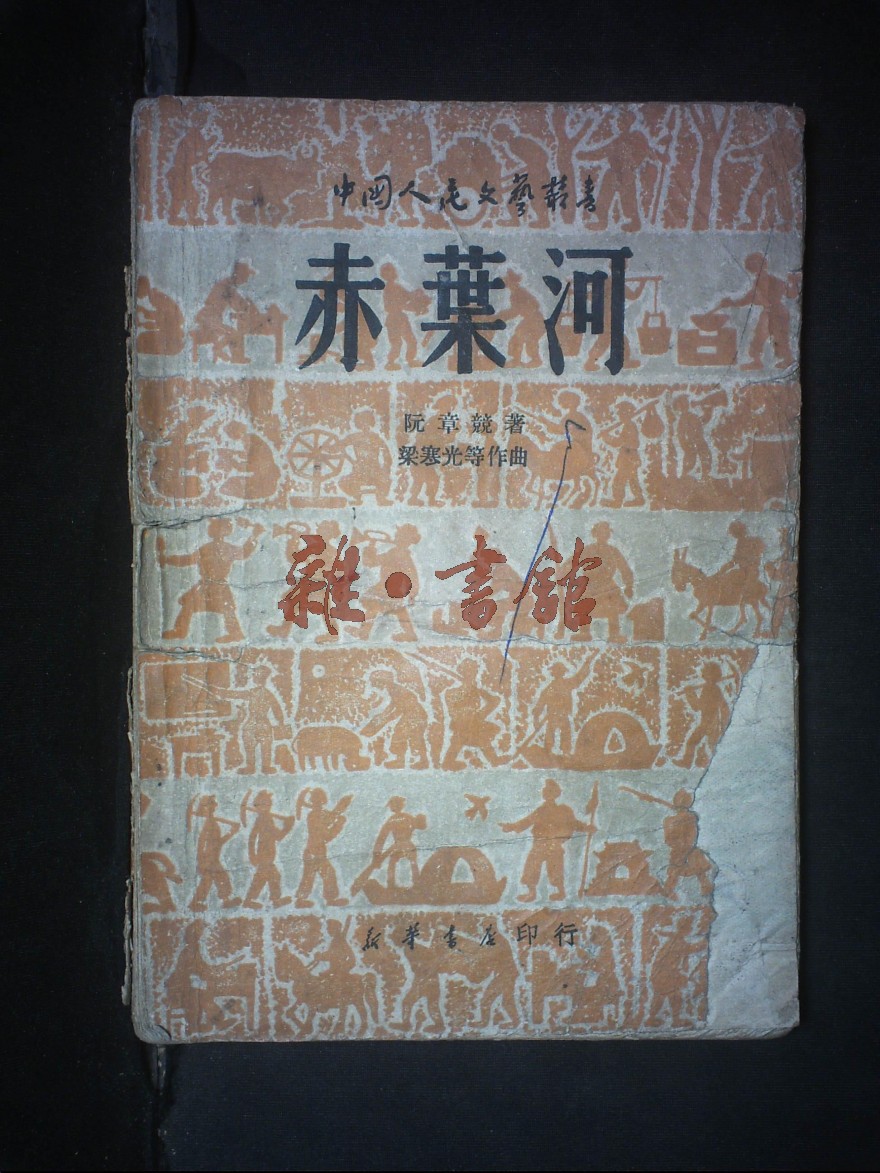 中國人民文藝叢書
赤葉河
阮章競著
梁寒光等作曲
雜·書館
新華書店印行